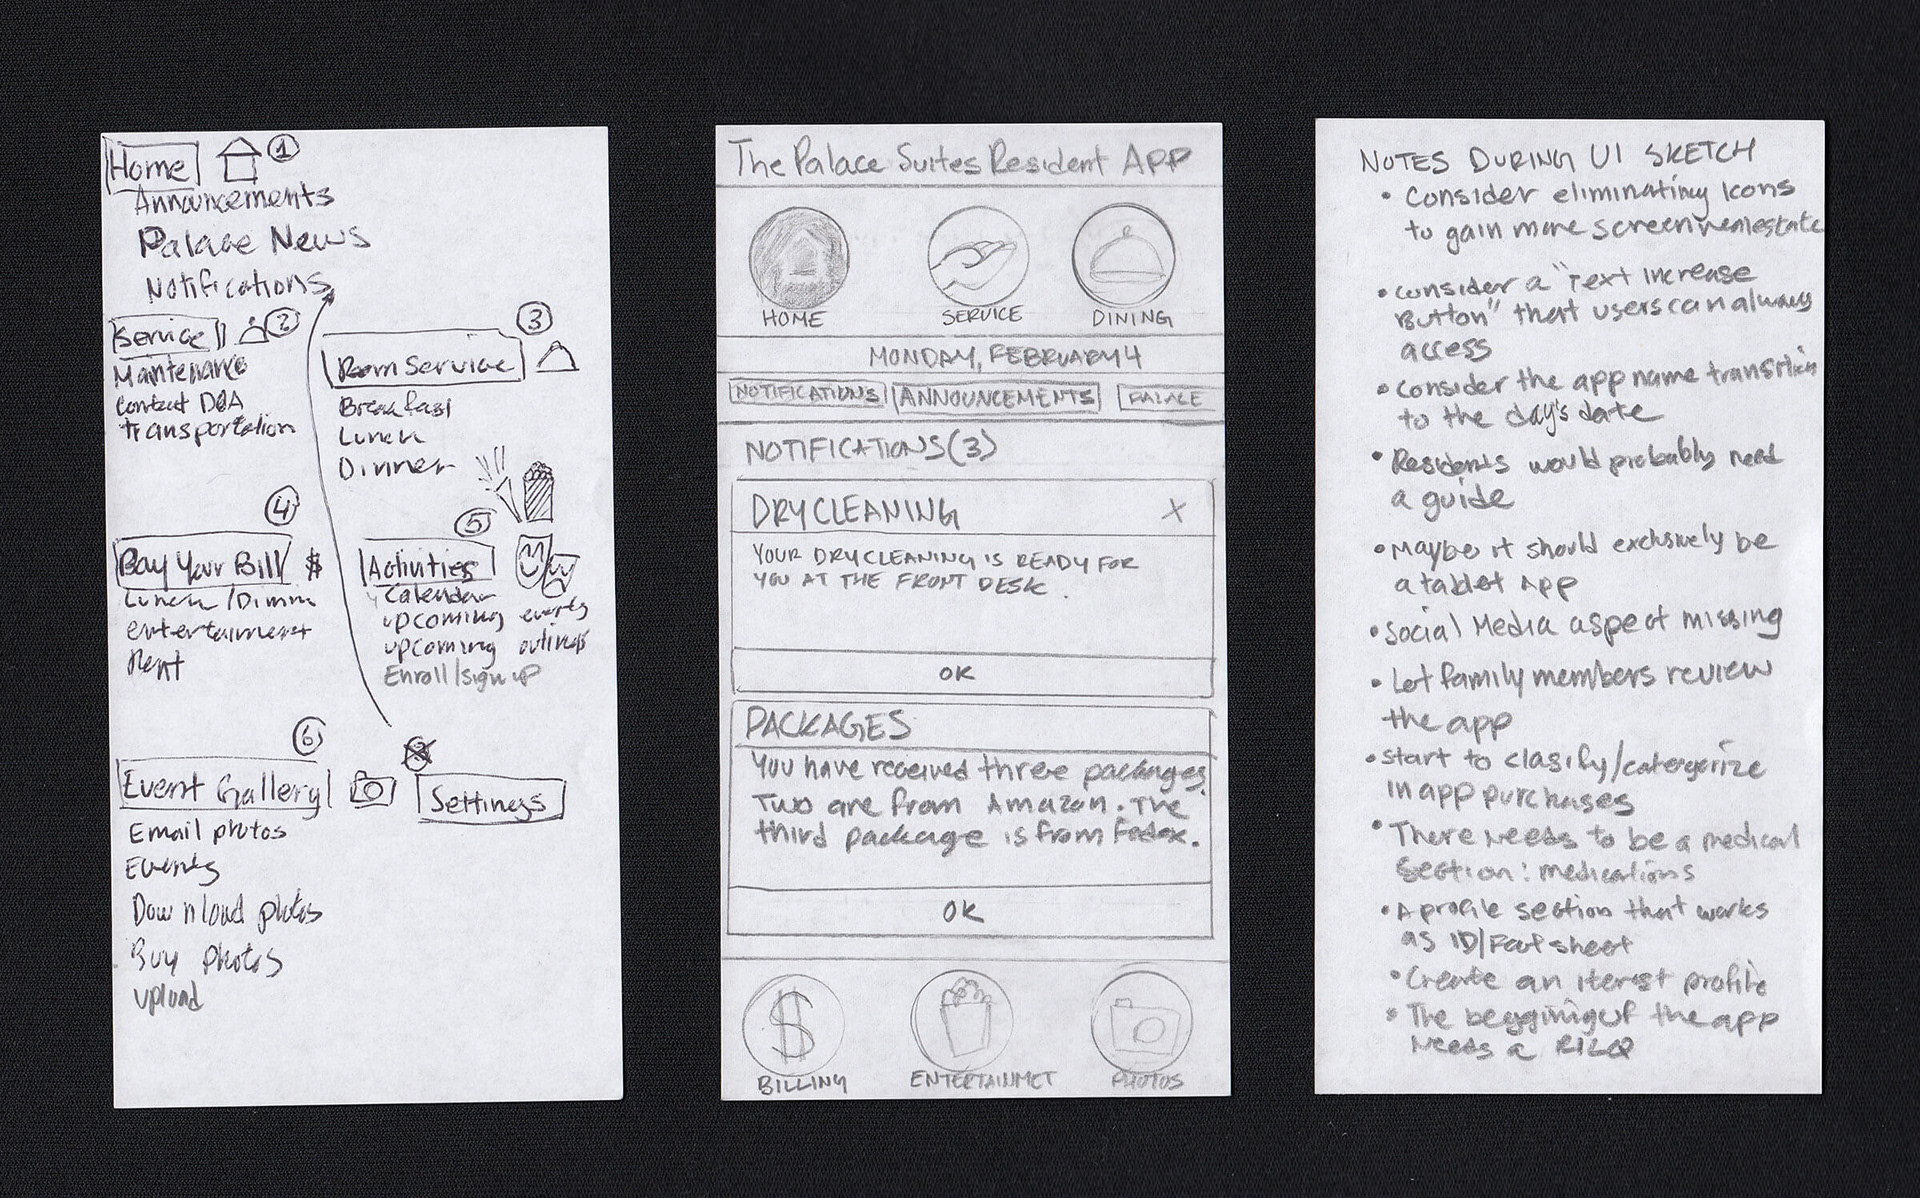 Home 1
Announcements
Palace News
Notifications
Service 2
Maintenance
Contact DOA
transportation
3
Room Service
Breakfast
Lunch
Dinner
4
Pay Your Bill $
Lunch/Dinn
entertainment
Rent
5
Activities
Calendar
upcoming events
upcoming outings
Enroll/sign up
6
Event Gallery
Email photos
Events
Download photos
Buy photos
upload
Settings
The Palace Suites Resident App
HOME SERVICE DINING
MONDAY, FEBRUARY 4
NOTIFICATIONS ANNOUNCEMENTS PALACE
NOTIFICATIONS(3)
DRY CLEANING X
YOUR DRYCLEANING IS READY FOR
YOU AT THE FRONT DESK.
OK
PACKAGES
You have received three packages.
Two are from Amazon. The
third package is from Fedex.
OK
$
BILLING ENTERTAINMCT PHOTOS
NOTES DURING UI SKETCH
• Consider eliminating Icons
to gain more screen realestate
• Consider a "Text Increase
Button" that users can always
access
• Consider the app name transition
to the day's date
• Residents would probably need
a guide
• Maybe it should exclusively be
a tablet App
• Social Media aspect missing
• Let family members review
the app
• Start to clasify/catergorize
in app purchases
• There needs to be a medical
section: medications
• A profile section that works
as ID/Fact sheet
• Create an iterest profile
• The beggining of the app
needs a